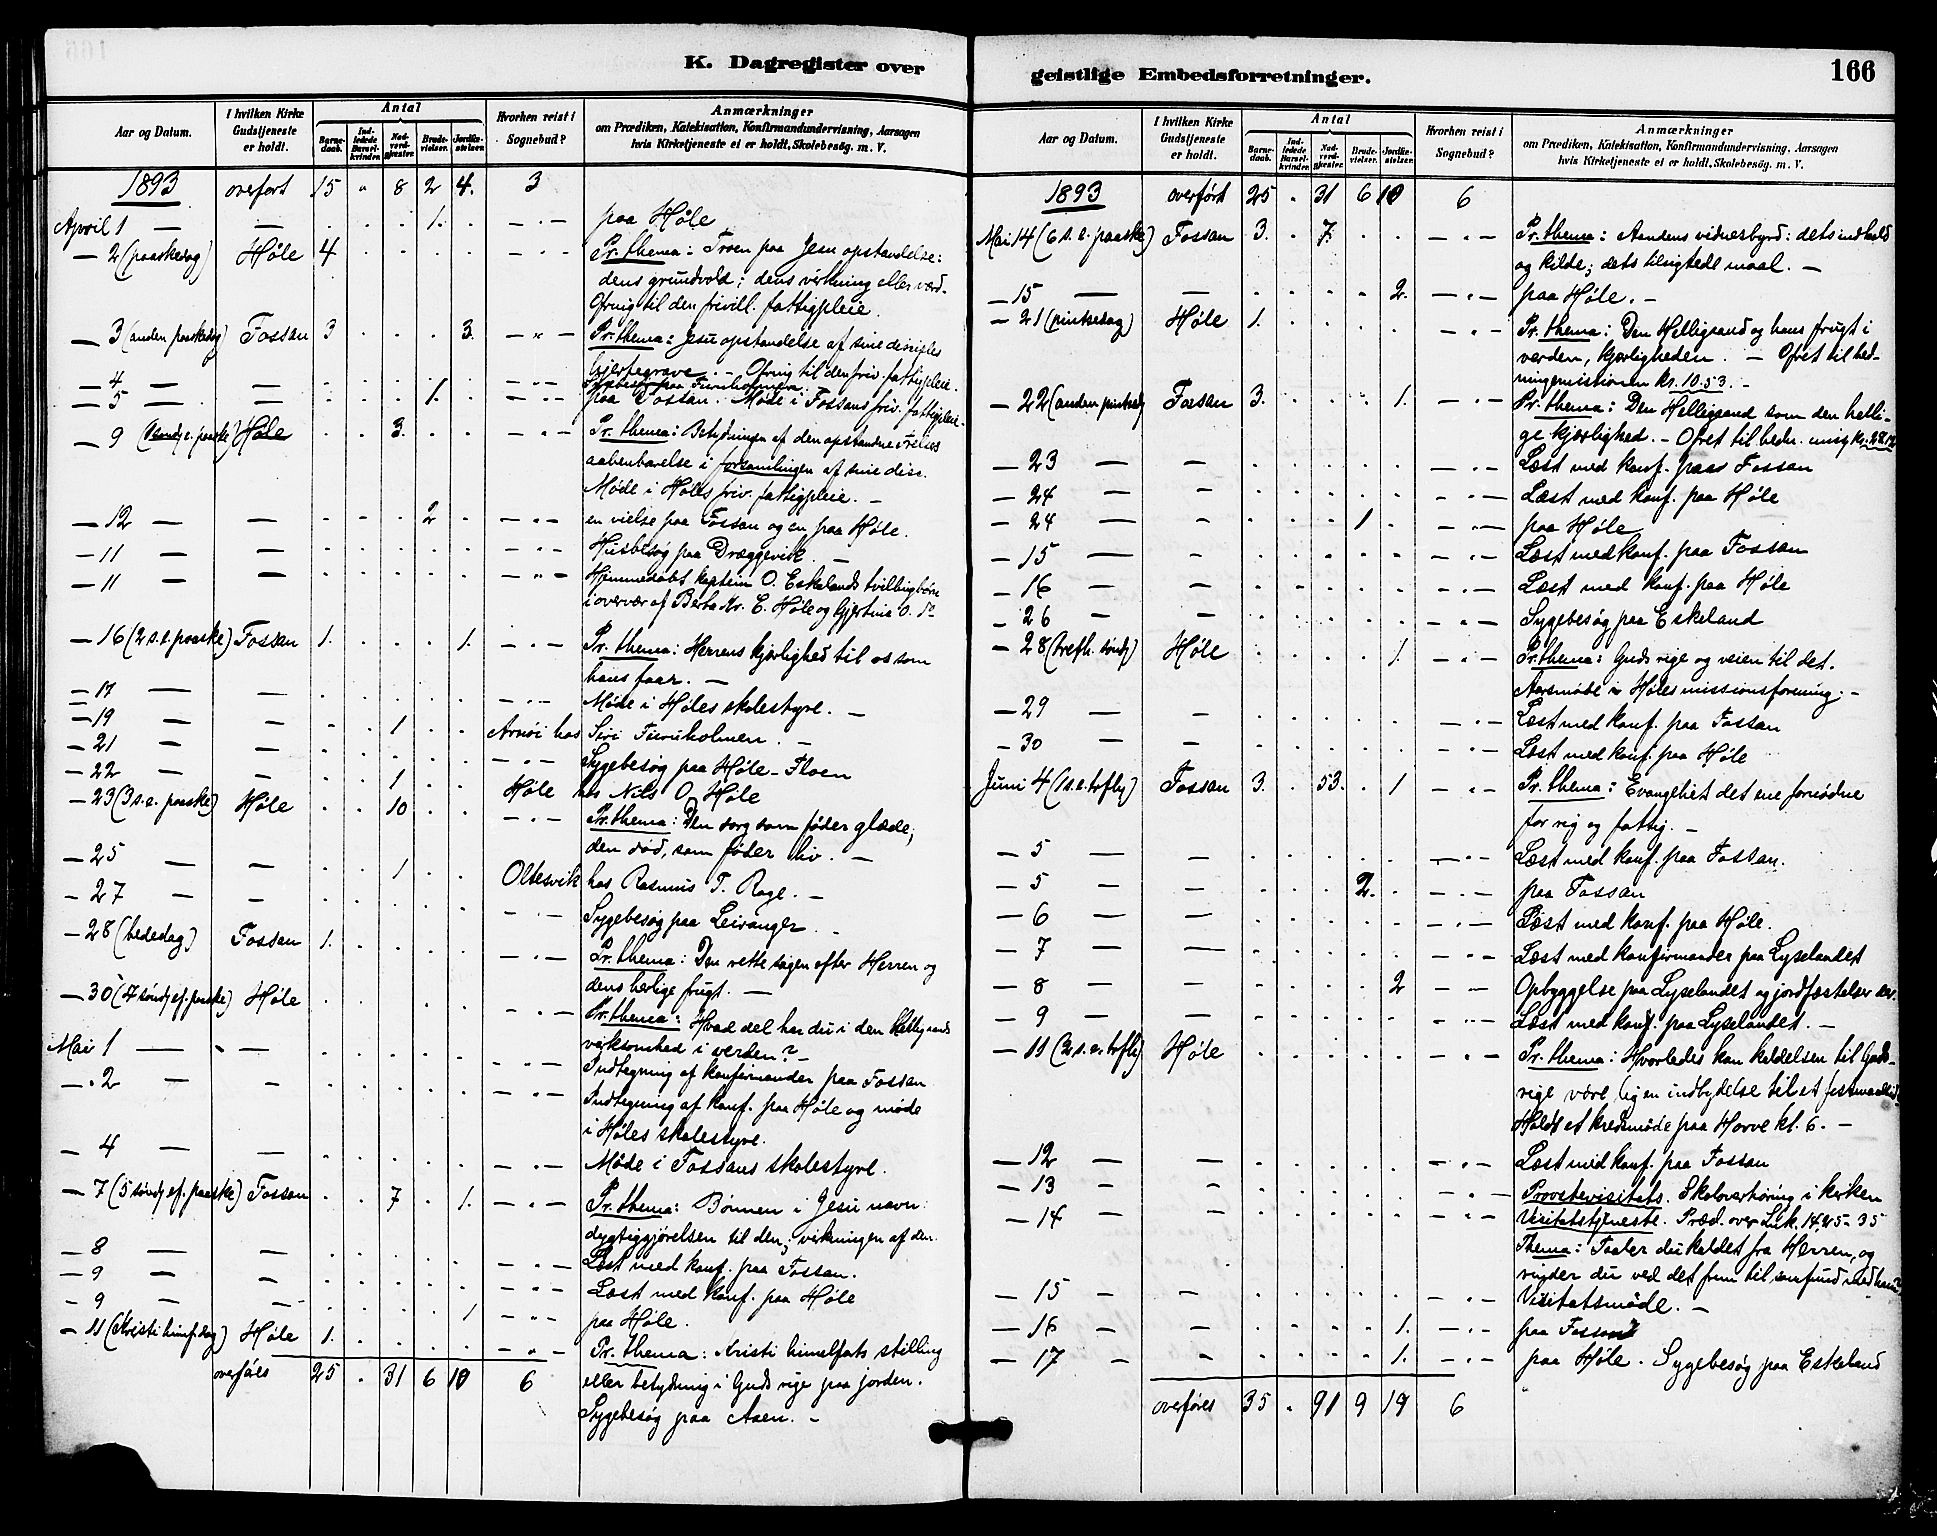 K. Dagregister over
Aar og Datum. I hvilken Kirke Gudstjeneste er holdt. Antal Barnedaab. Indledede Barselkvinder. Nadverdgjester. Brudevielser. Jordfæstelser. Hvorhen reist i Sognebud? Anmærkninger
om Prædiken, Katekisation, Konfirmandundervisning, Aarsagen
hvis Kirketjeneste ei er holdt, Skolebesøg. m. V.
1893 overført 15 " 8 2 4. 3
April 1 — — . . . 1. . — " — paa Høle
— 2 (paaskedag) Høle 4 . . . . — " — Pr. thema: Troen paa Jesu opstandelse:
dens grundvold; dens virkning eller værd.
Ofring til den frivill. fattigpleie.
— 3 (anden paaskedag) Fossan 3 . . . 3. — " — Pr. thema: Jesu opstandelse af sine disciples
hjertegrave. — Ofring til den friv. fattigpleie.
— 4 — — . . . . . — " — Sygebesøg paa Furuholmen.
— 5 — — . . . 1. . — " — paa Fossan. Møde i Fossans friv. fattigpleie.
— 9 (1 sønd. e. paaske) Høle . . 3. . . — " — Pr. thema: Betydningen af den opstandne frelses
aabenbarelse i forsamlingen af sine disc.
Møde i Høles friv. fattigpleie. —
— 12 — — . . . 2 . — " — en vielse paa Fossan og en paa Høle.
— 11 — — . . . . . — " — Husbesøg paa Dræggevik —
— 11 — — . . . . . — " — Hjemmedøbt kaptein O. Eskelands tvillingbørn
i overvær af Berta Kr. E. Høle og Gjertina O. do
— 16 (2 s. e. paaske) Fossan 1. . . . 1. — " — Pr. thema: Herrens kjærlighed til os som
hans faar. —
— 17 — — . . . . . — " — Møde i Høles skolestyre. —
— 19 — — . . 1 . . Arnøi hos Siri Furuholmen. —
— 21 — — . . . . . — " — Sygebesøg paa Høle-Floen
— 22 — — . . 1 . . Høle hos Nils O. Høle
— 23 (3 s. e. paaske) Høle . . 10 . . — " — Pr. thema: Den sorg som føder glæde;
den død, som føder liv. —
— 25 — — . . 1 . . Oltesvik hos Rasmus T. Rage. —
— 27 — — . . . . . — " — Sygebesøg paa Leivanger —
— 28 (bededag) Fossan 1. . . . . — " — Pr. thema: Den rette søgen efter Herren og
dens herlige frugt. —
— 30 (4 sønd. ef. paaske) Høle . . . . . — " — Pr. thema: Hvad del har du i den Helligaands
virksomhed i verden? —
Mai 1 — — . . . . . — " — Indtegning af konfirmander paa Fossan
— 2 — — . . . . . — " — Indtegning af konf. paa Høle og møde
i Høles skolestyre.
— 4 — — . . . . . — " — Møde i Fossans skolestyre.
— 7 (5 sønd. ef. paaske) Fossan . . 7 . 1. — " — Pr. thema: Bønnen i Jesu navn:
dygtiggjørelsen til den; virkningen af den.
— 8 — — . . . . . — " — Læst med konf. paa Fossan.
— 9 — — . . . . . — " — Læst med konf. paa Høle
— 9 — — . . . . 1 — " — paa Høle.
— 11 (Kristi himf. dag) Høle 1. . . . . — " — Pr. thema: Kristi himelfarts stilling
overføres 25 . 31 6 10 6 eller betydning i Guds rige paa jorden.
Sygebesøg paa Aaen. —
geistlige Embedsforretninger. 166
Aar og Datum. I hvilken Kirke Gudstjeneste er holdt. Antal Barnedaab. Indledede Barselkvinder. Nadverdgjester. Brudevielser. Jordfæstelser. Hvorhen reist i Sognebud? Anmærkninger
om Prædiken, Katekisation, Konfirmandundervisning, Aarsagen
hvis Kirketjeneste ei er holdt, Skolebesøg. m. V.
1893 overført 25 . 31 6 10 6
Mai 14 (6 s. e. paaske) Fossan 3. . 7. . . — " — Pr. thema: Aandens vidnesbyrd: dets indhold
og kilde; dets tilsigtede maal. —
— 15 — — . . . . 2. — " — paa Høle. —
— 21 (pintsedag) Høle 1. . . . . — " — Pr. thema: Den Helligaand og hans frugt i
verden, kjærligheden. — Ofret til hed-
ningemissionen kr. 10.53. —
— 22 (anden pintsed.) Fossan 3. . . . 1. — " — Pr. thema: Den Helligaand som den helli-
ge kjærlighed. — Ofret til hedn. misj. kr.
— 23 — — . . . . . — " — Læst med konf. paa Fossan
— 24 — — . . . . . — " — Læst med konf. paa Høle
— 24 — — . . . 1 . — " — paa Høle
— 15 — — . . . . . — " — Læst med konf. paa Fossan
— 16 — — . . . . . — " — Læst med konf. paa Høle
— 26 — — . . . . . — " — Sygebesøg paa Eskeland
— 28 (trefh. sønd.) Høle . . . . 1. — " — Pr. thema: Guds rige og veien til det.
Aarsmøde i Høles missionsforening. —
— 29 — — . . . . . — " — Læst med konf. paa Fossan
— 30 — — . . . . . — " — Læst med konf. paa Høle
Juni 4 (1 s. e. trefh.) Fossan 3. . 53. . 1 — " — Pr. thema: Evangeliet det ene fornødne
for rig og fattig. —
— 5 — — . . . . . — " — Læst med konf. paa Fossan.
— 5 — — . . . 2. . — " — paa Fossan
— 6 — — . . . . . — " — Læst med konf. paa Høle.
— 7 — — . . . . . — " — Læst med konfirmander paa Lyselandet
— 8 — — . . . . 2 — " — Opbyggelse paa Lyselandet og jordfæstelser der.
— 9 — — . . . . . — " — Læst med konf. paa Lyselandet. —
— 11 (2 s. e. trefh.) Høle . . . . . — " — Pr. thema: Hvorledes kan kaldelsen til Guds-
rige være lig en indbydelse til et festmaaltid.
Holdt et kredsmøde paa Horve kl. 6. —
— 12 — — . . . . . — " — Læst med konf. paa Fossan
— 13 — — . . . . . — " — Provstevisitats. Skoleoverhøring i kirken
— 14 — — . . . . . — " — Visitatstjeneste. Præd. over Luk. 14, 25-35
Thema: Taaler du kaldet fra Herren, og
rygder du ved det frem til samfund med ham?
— 15 — — . . . . . — " — Visitatsmøde. —
— 16 — — . . . . 1. — " — paa Fossan
— 17 — — . . . . 1. — " — paa Høle. Sygebesøg paa Eskeland
overføres 35 . 91 9 19 6 "